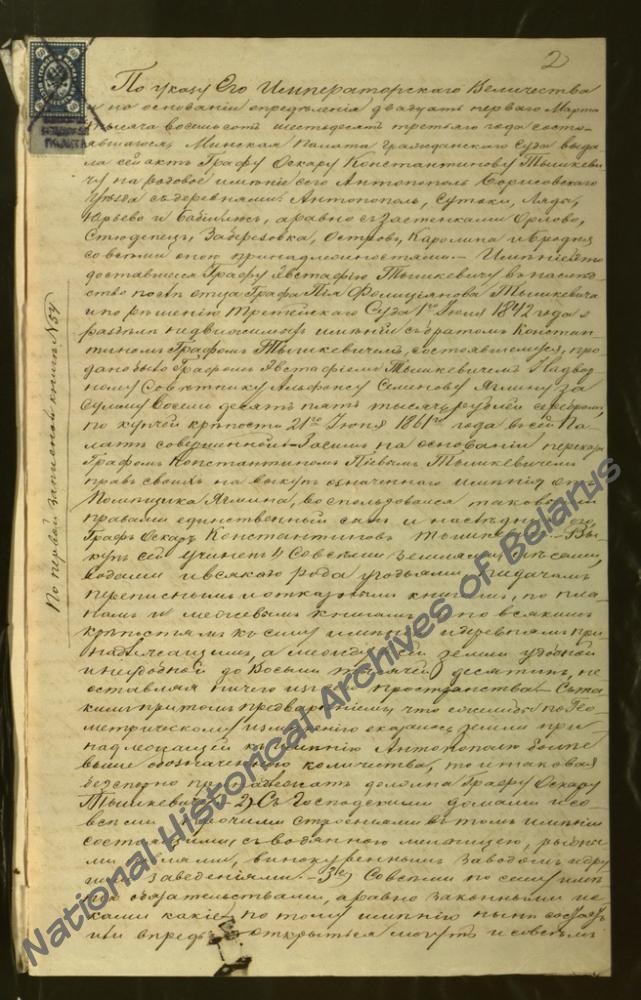 2
По указу Его Императорскаго Величества
и на основаніи опредѣленія двадцать перваго Марта
тысяча восемьсотъ шестьдесятъ третьяго года состо-
явшагося, Минская Палата Гражданскаго Суда выда-
ла сей актъ Графу Оскару Константинову Тышкеви-
чу на родовое имѣніе его Антополь Борисовскаго
уѣзда съ деревнями: Антополь, Сутоки, Ляда,
Юрьево и, а равно съ застѣнками Орлово,
Студенецъ, Заберезовка, Островъ, Каролина и Бродня
со всѣми оною принадлежностями. Имѣніе это
доставшееся Графу Евстафію Тышкевичу въ наслѣд-
ство послѣ отца Графа Пія Фелиціянова Тышкевича
и по рѣшенію Третейскаго Суда 1го Іюня 1842 года о
раздѣлѣ недвижимыхъ имѣній съ братомъ Констан-
тиномъ Графомъ Тышкевичемъ, состоявшемуся, про-
дано было Графомъ Евстафіемъ Тышкевичемъ Надвор-
ному Совѣтнику Альфонсу Семенову Ягмину за
сумму восемьдесятъ пять тысячъ рублей серебромъ,
по купчей крѣпости 21го Іюня 1861го года въ сей Па-
латѣ совершенной. Засимъ на основаніи
Графомъ Константиномъ Піевымъ Тышкевичемъ
правъ своихъ на выкупъ означеннаго имѣнія отъ
Помѣщика Ягмина, воспользовался таковыми
правами единственный сынъ и наслѣдникъ его
Графъ Оскаръ Константиновъ Тышкевичъ. Вы-
купъ сей учиненъ 1) Со всѣми землями, лѣсами,
водами и всякаго рода угодьями,
переписными и отказными книгами, по пла-
намъ и межевымъ книгамъ и по всякимъ
крѣпостямъ къ сему имѣнію и деревнямъ при-
надлежащимъ, а между всей земли удобной
и неудобной до восьми тысячъ десятинъ, не
оставляя ничего изъ пространства съ та-
кимъ притомъ предвареніемъ, что если бы по Гео-
метрическому измѣренію оказалось земли при-
надлежащей къ имѣнію Антополю болѣе
выше обозначеннаго количества, то и таковая
безспорно принадлежать должна Графу Оскару
Тышкевичу. 2) Съ Господскими домами и со
всѣми прочими строеніями въ томъ имѣніи
состоящими, съ водяною мельницею, рыбны-
ми ловлями, винокуреннымъ заводомъ и дру-
гими заведеніями. 3е) Со всѣми по сему имѣ-
нію обязательствами, а равно законными ис-
ками какіе по тому имѣнію нынѣ состоятъ
или впредь открыться могутъ и совсѣмъ
По первой записной книгѣ № 54
National Historical Archives of Belarus